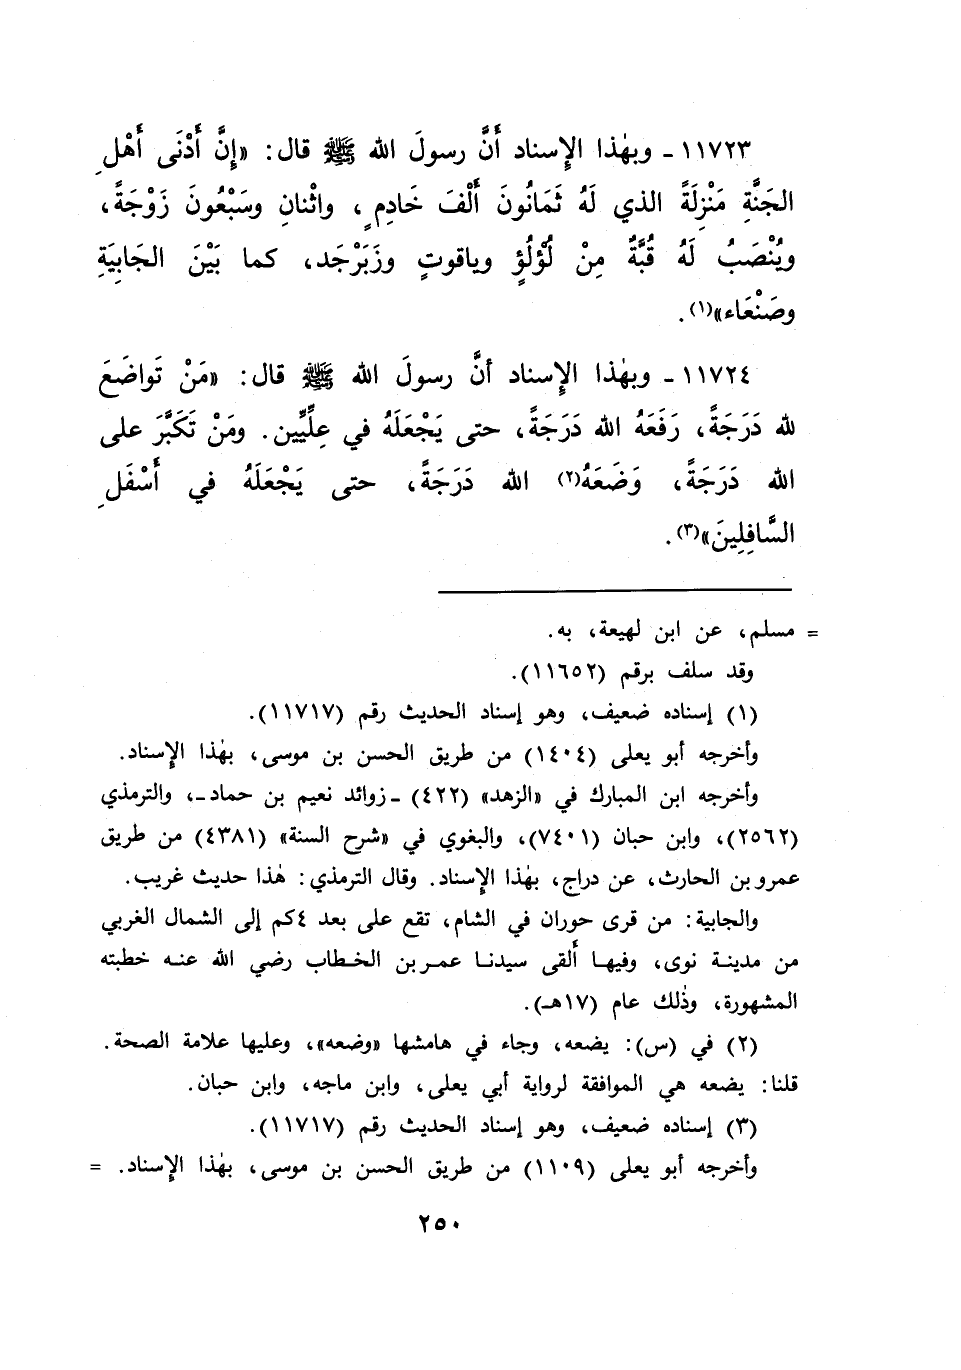 ١١٧٢٣ - وبهٰذا الإسناد أَنَّ رسولَ الله ﷺ قال: «إِنَّ أَدْنَى أَهْلِ
الجَنَّةِ مَنْزِلَةً الذي لَهُ ثَمَانُونَ أَلْفَ خَادِمٍ، واثْنانِ وسَبْعُونَ زَوْجَةً،
ويُنْصَبُ لَهُ قُبَّةٌ مِنْ لُؤْلُؤٍ وياقوتٍ وزَبَرْجَد، كما بَيْنَ الجَابِيَةِ
وصَنْعَاء»(١).
١١٧٢٤ - وبهٰذا الإسناد أنَّ رسولَ الله ﷺ قال: «مَنْ تَواضَعَ
لله دَرَجَةً، رَفَعَهُ الله دَرَجَةً، حتى يَجْعَلَهُ في عِلِّيِّين. ومَنْ تَكَبَّرَ على
الله دَرَجَةً، وَضَعَهُ(٢) الله دَرَجَةً، حتى يَجْعَلَهُ في أَسْفَلِ
السَّافِلِينَ»(٣).
= مسلم، عن ابن لهيعة، به.
وقد سلف برقم (١١٦٥٢).
(١) إسناده ضعيف، وهو إسناد الحديث رقم (١١٧١٧).
وأخرجه أبو يعلى (١٤٠٤) من طريق الحسن بن موسى، بهٰذا الإسناد.
وأخرجه ابن المبارك في «الزهد» (٤٢٢) -زوائد نعيم بن حماد-، والترمذي
(٢٥٦٢)، وابن حبان (٧٤٠١)، والبغوي في «شرح السنة» (٤٣٨١) من طريق
عمرو بن الحارث، عن دراج، بهٰذا الإسناد. وقال الترمذي: هٰذا حديث غريب.
والجابية: من قرى حوران في الشام، تقع على بعد ٤كم إلى الشمال الغربي
من مدينة نوى، وفيها أَلقى سيدنا عمر بن الخطاب رضي الله عنه خطبته
المشهورة، وذٰلك عام (١٧هـ).
(٢) في (س): يضعه، وجاء في هامشها «وضعه»، وعليها علامة الصحة.
قلنا: يضعه هي الموافقة لرواية أبي يعلى، وابن ماجه، وابن حبان.
(٣) إسناده ضعيف، وهو إسناد الحديث رقم (١١٧١٧).
وأخرجه أبو يعلى (١١٠٩) من طريق الحسن بن موسى، بهٰذا الإسناد. =
٢٥٠